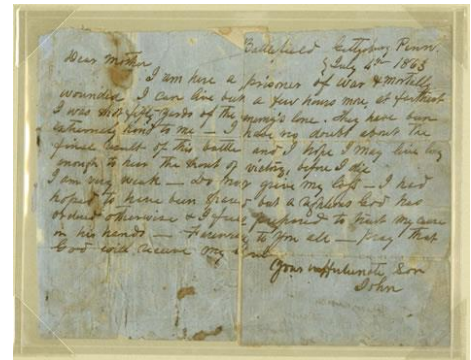 Battlefield Gettysburg Penn.
July 4th 1863
Dear Mother
I am here a prisoner of war & mortally
wounded. I can live but a few hours more, at farthest
I was shot fifty yards of the enemy's line. They have been
extremely kind to me — I have no doubt about the
final result of this battle and I hope I may live long
enough to hear the shout of victory, before I die
I am very weak — Do not grieve my loss — I had
hoped to have been spared but a righteous God has
ordered otherwise & I feel prepared to trust my case
in his hands — Farewell to you all — Pray that
God will receive my soul
Your unfortunate son
John